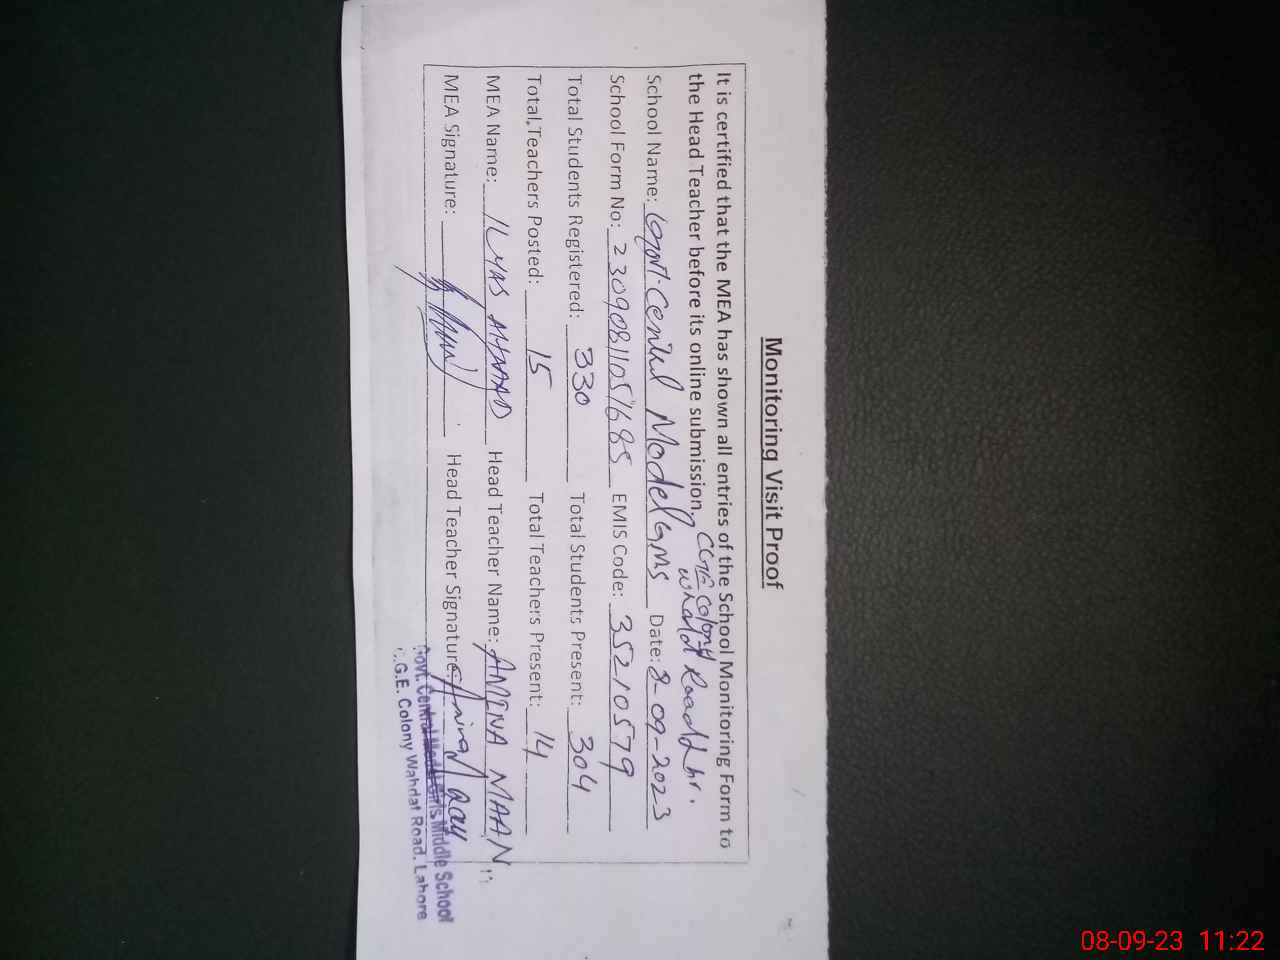 Monitoring Visit Proof
It is certified that the MEA has shown all entries of the School Monitoring Form to
the Head Teacher before its online submission. CGE Colony
Road Lhr.
School Name: Govt. Central Model GMS Date: 8-09-2023
School Form No: 23090811051685 EMIS Code: 35210579
Total Students Registered: 330 Total Students Present: 304
Total Teachers Posted: 15 Total Teachers Present: 14
MEA Name: ILYAS AHMAD Head Teacher Name: AMINA MAAN
MEA Signature: Head Teacher Signature:
Govt. Central Model Girls Middle School
G.E. Colony Wahdat Road, Lahore
08-09-23 11:22